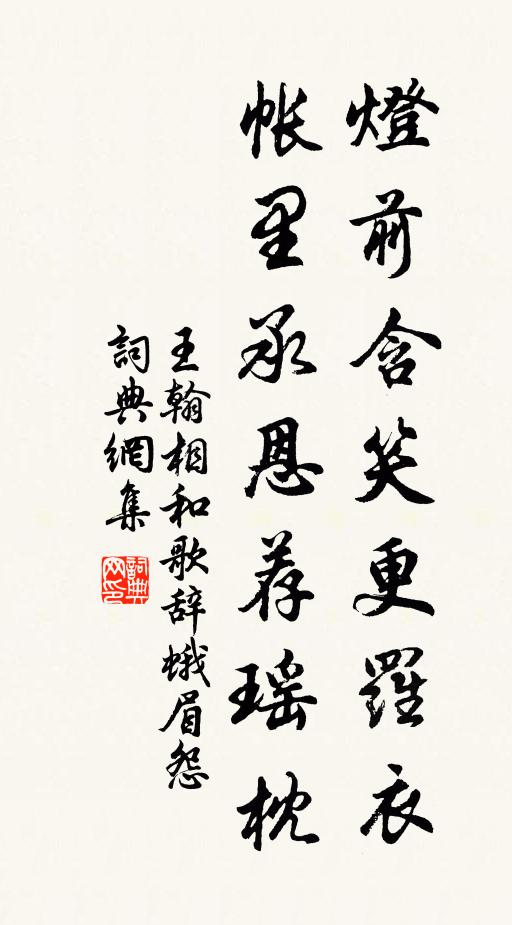 燈前含笑更羅衣
帳里承恩荐瑶枕
王翰相和歌辞蛾眉怨
詞典網集
詞典
网印